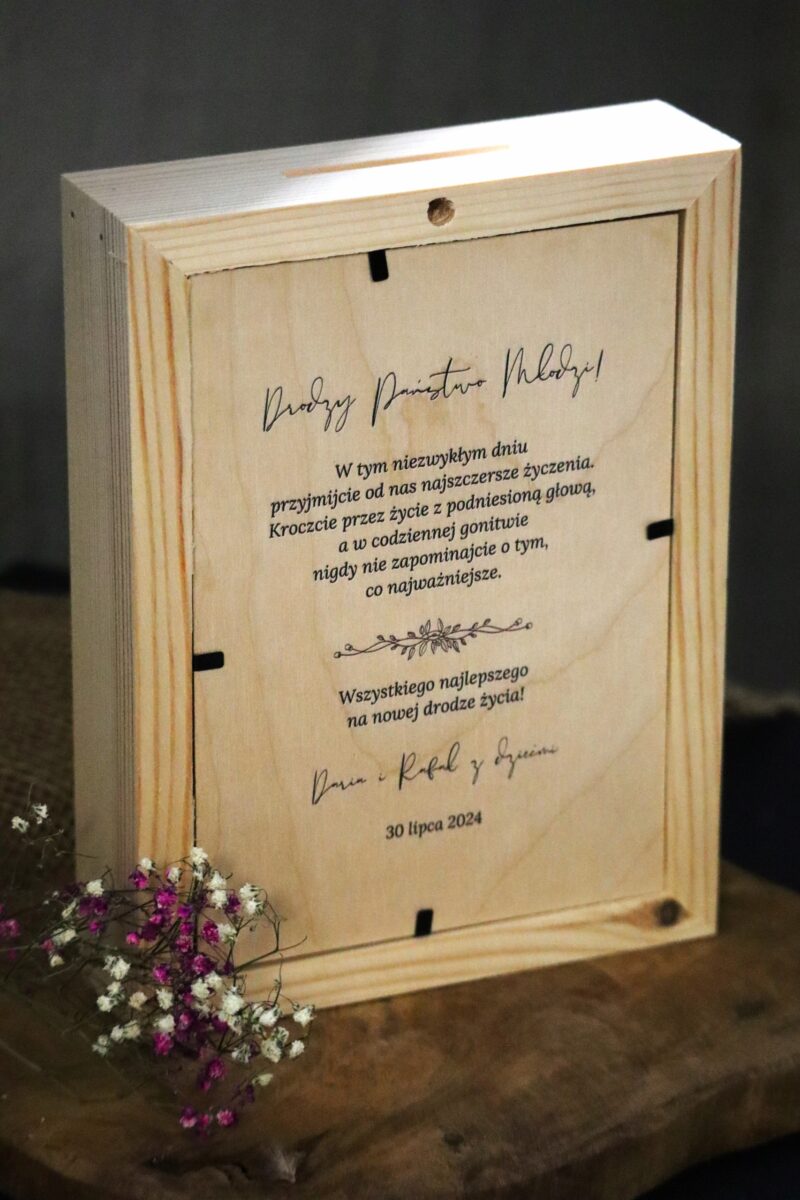 Drodzy Państwo Młodzi!
W tym niezwykłym dniu
przyjmijcie od nas najszczersze życzenia.
Kroczcie przez życie z podniesioną głową,
a w codziennej gonitwie
nigdy nie zapominajcie o tym,
co najważniejsze.
Wszystkiego najlepszego
na nowej drodze życia!
Daria i Rafał z dziećmi
30 lipca 2024